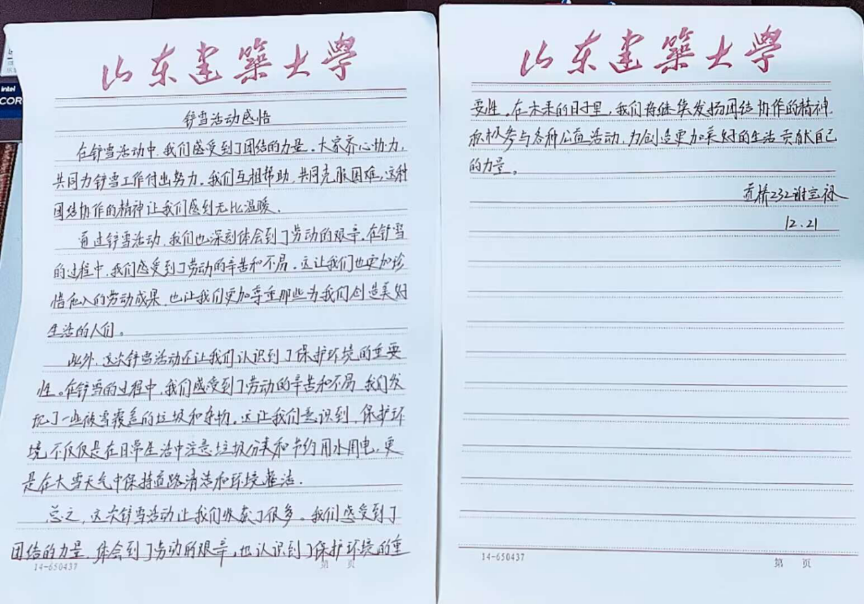 山东建筑大学
铲雪活动感悟
在铲雪活动中,我们感受到了团结的力量。大家齐心协力,
共同为铲雪工作付出努力。我们互相帮助,共同克服困难,这种
团结协作的精神让我们感到无比温暖。
通过铲雪活动,我们也深刻体会到了劳动的艰辛。在铲雪
的过程中,我们感受到了劳动的辛苦和不易。这让我们也更加珍
惜他人的劳动成果,也让我们更加尊重那些为我们创造美好
生活的人们。
此外,这次铲雪活动还让我们认识到了保护环境的重要
性。在铲雪的过程中,我们感受到了劳动的辛苦和不易,我们发
现了一些被雪覆盖的垃圾和杂物。这让我们意识到,保护环
境不仅仅是在日常生活中注意垃圾分类和节约用水用电,更
是在大雪天气中保持道路清洁和环境整洁。
总之,这次铲雪活动让我们收获了很多。我们感受到了
团结的力量,体会到了劳动的艰辛,也认识到了保护环境的重
14-650437
第 页
山东建筑大学
要性。在未来的日子里,我们将继续发扬团结协作的精神,
积极参与各种公益活动,为创造更加美好的生活贡献自己
的力量。
道桥232谢宝禄
12.21
14-650437
第 页